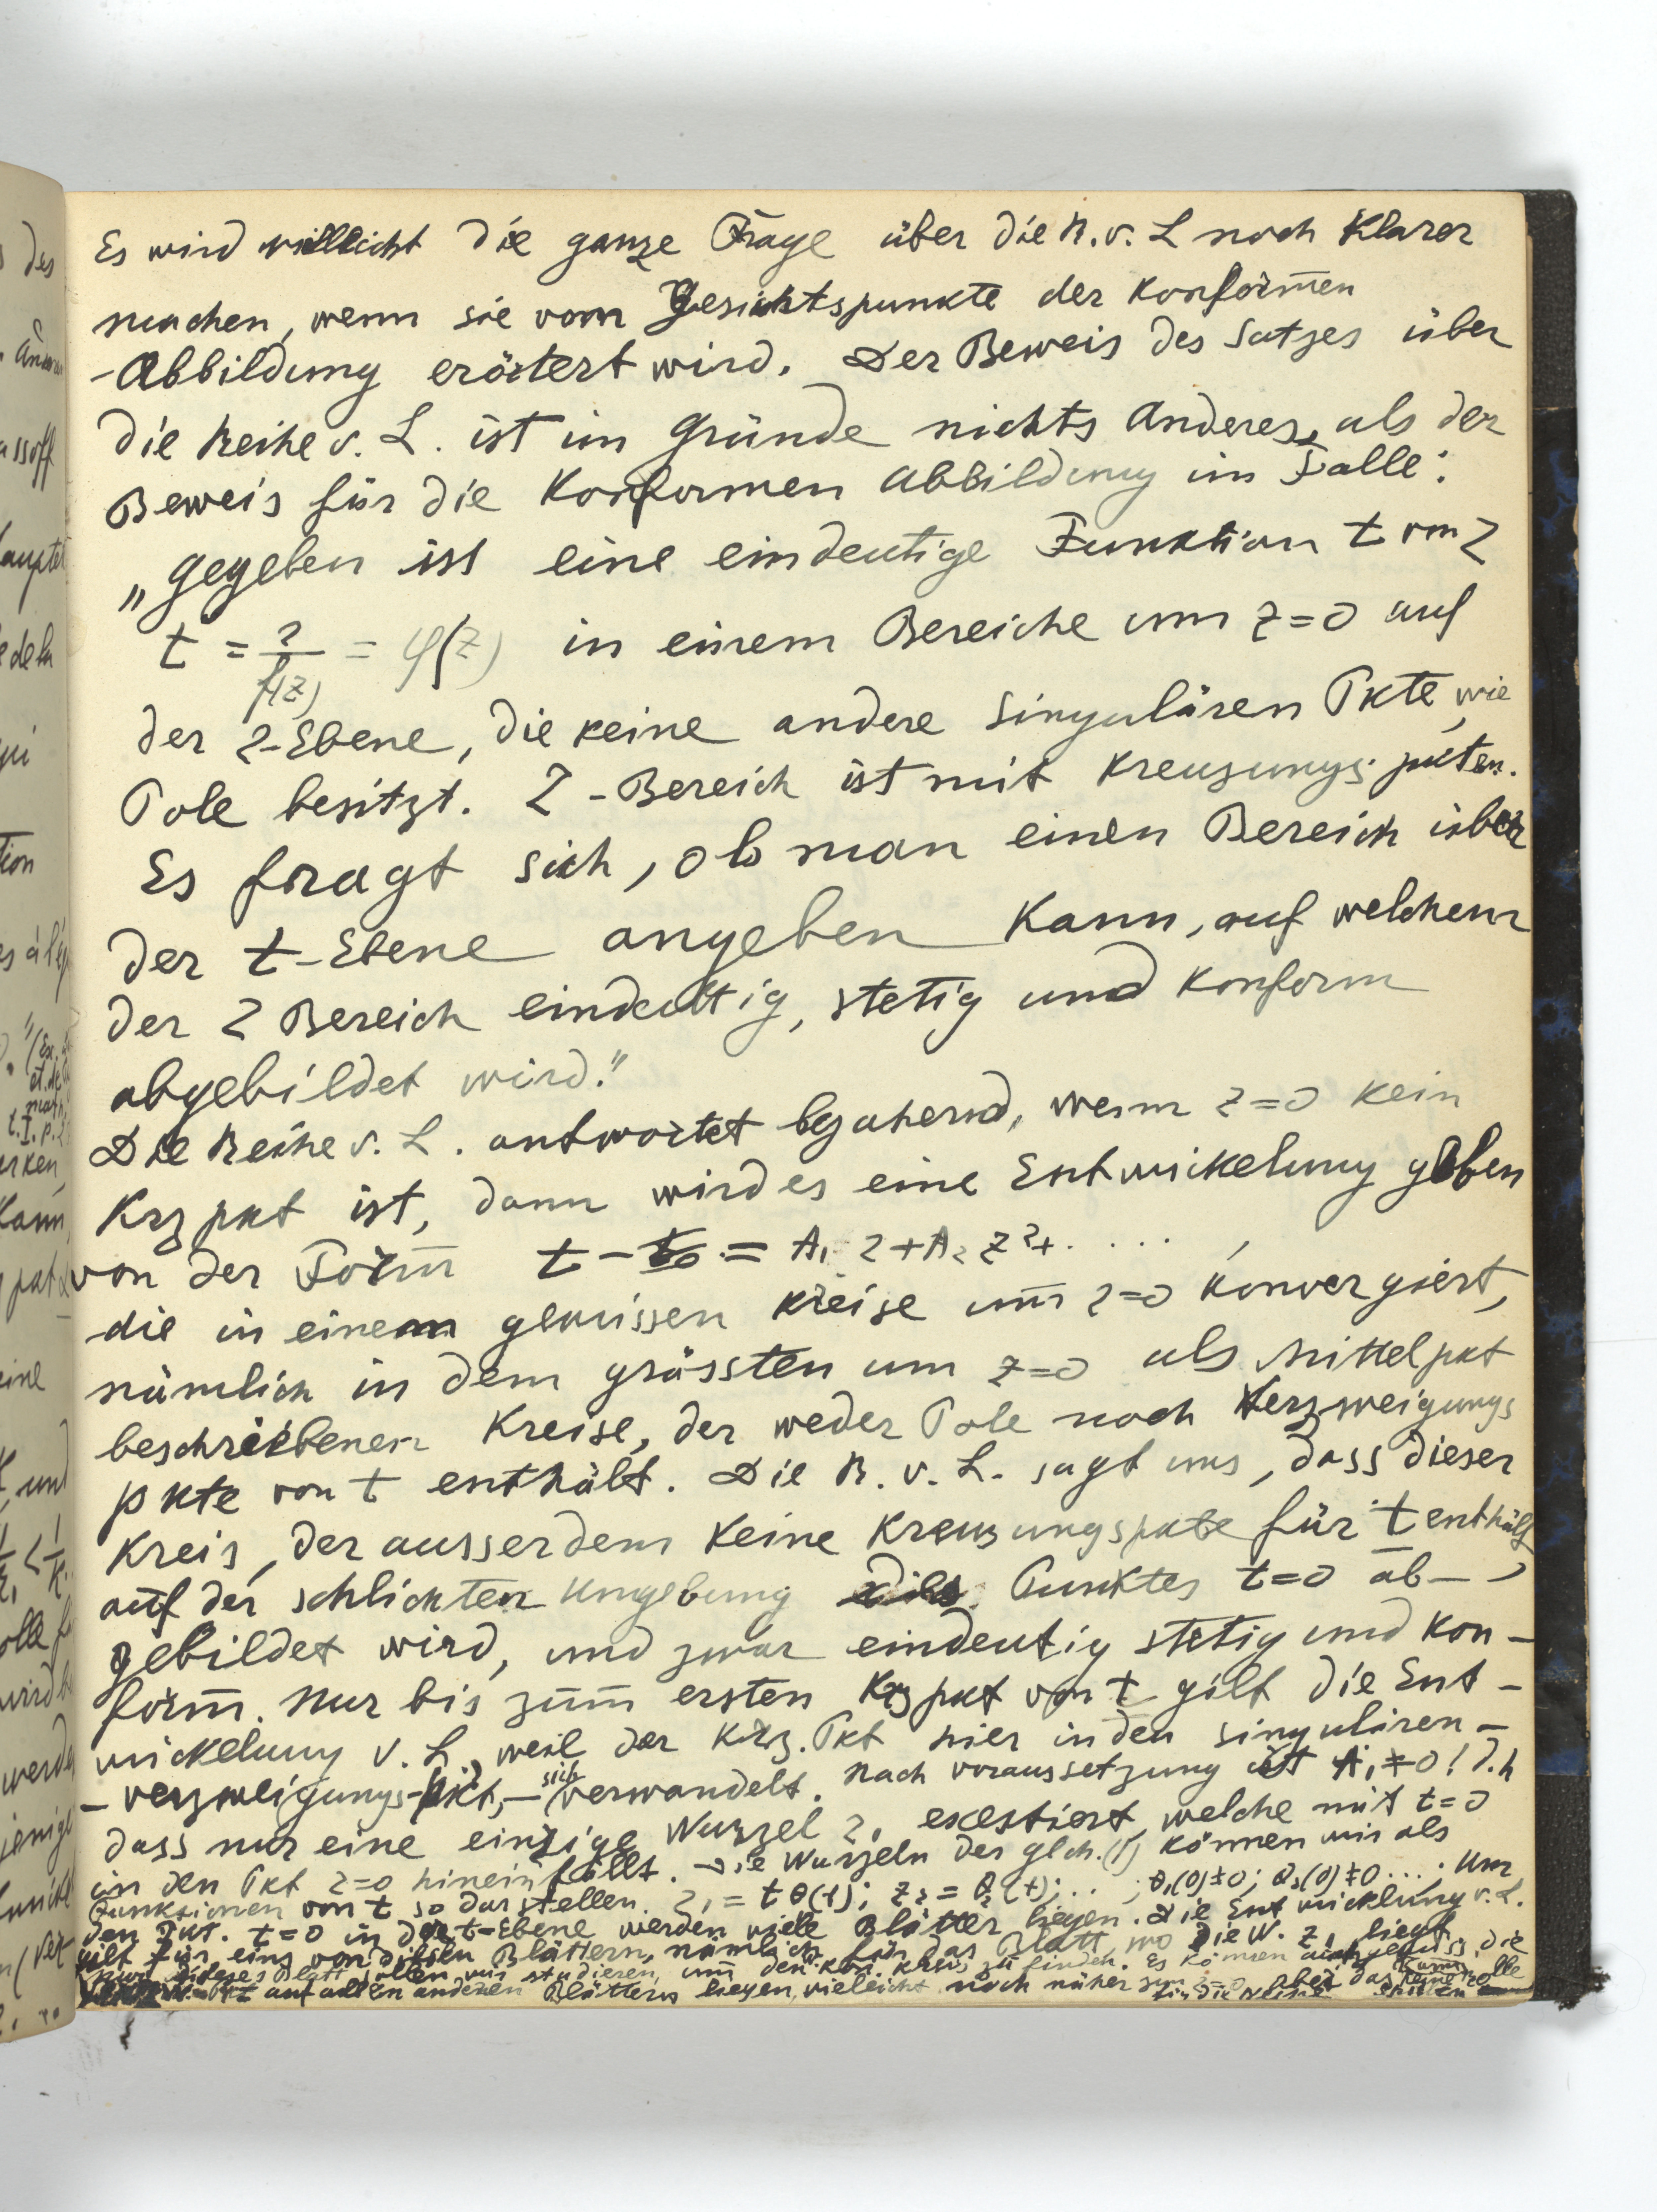 Es wird villeicht die ganze Frage über die R. v. L noch Klarer
machen, wenn sie vom Gesichtspunkte der Konformen
-Abbildung erörtert wird. Der Beweis des Satzes über
die Reihe v. L. ist im Gründe nichts Anderes, als der
Beweis für die Konformen Abbildung im Falle:
„Gegeben ist eine eindeutige Funktion t von z
t = z/f(z) = φ(z) in einem Bereiche um z=0 auf
der z-Ebene, die keine andere singulären Pkte, wie
Pole besitzt. Z-Bereich ist mit Kreuzungspkten.
Es fragt sich, ob man einen Bereich über
der t-Ebene angeben Kann, auf welchem
der z Bereich eindeutig, stetig und Konform
abgebildet wird."
Die Reihe v. L. antwortet bejahend, wenn z=0 kein
Krz pkt ist, dann wird es eine Entwickelung geben
von der Form t - t₀ = A₁ z + A₂ z² + . . . . ,
die in einem gewissen Kreise um z=0 Konvergiert,
nämlich in dem grössten um z=0 als Mittelpkt
beschriebenen Kreise, der weder Pole noch Verzweigungs
pkte von t enthält. Die R. v. L. sagt uns, dass dieser
Kreis, der ausserdem Keine Kreuzungspkte für t enthält,
auf der schlichten Umgebung des Punktes t=0 ab-
gebildet wird, und zwar eindeutig stetig und Kon-
form. Nur bis zum ersten Krz pkt von t gilt die Ent-
wickelung v. L, weil der Krz. Pkt hier in den singulären -
- verzweigungs-pkt, - sich verwandelt. Nach voraussetzung ist A₁ ≠ 0! d.h
dass nur eine einzige Wurzel z₁ existiert, welche mit t=0
in den Pkt z=0 hineinfällt. Die Wurzeln der glch. (1) können wir als
Funktionen von t so darstellen. z₁ = t θ(t); z₂ = θ₂(t); . . ; θ₁(0)≠0; θ₂(0)≠0 . . . ; Um
den Pkt. t=0 in der t-Ebene werden viele Blätter liegen. Die Entwicklung v. L.
gilt für eins von diesen Blättern, nämlich für das Blatt, wo die W. z₁ liegt
nur dieses Blatt sollen wir studieren, um den Kon. Kreis zu finden. Es können auch gewiss, die
auf allen anderen Blättern liegen, vieleicht noch näher zum z=0, aber das